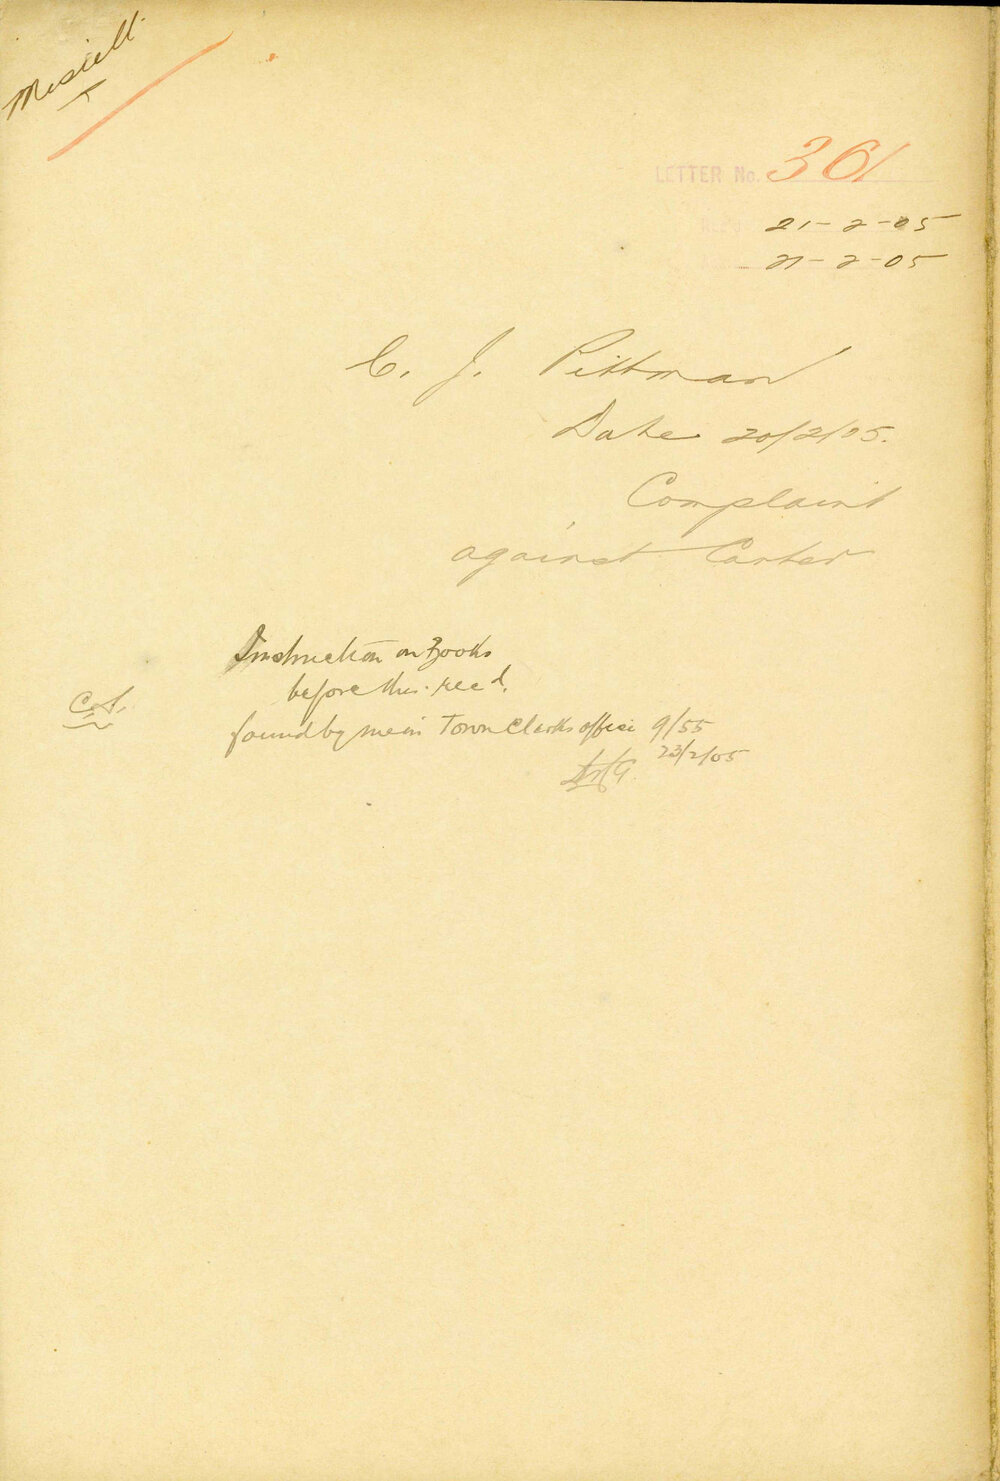 LETTER No. 361
Rec'd 21-2-05
21-2-05
C. J. Pittman
Date 20/2/05.
Complaint
against Carter
Instruction on Books
before this rec'd.
found by me in Town Clerks office 9/55
23/2/05